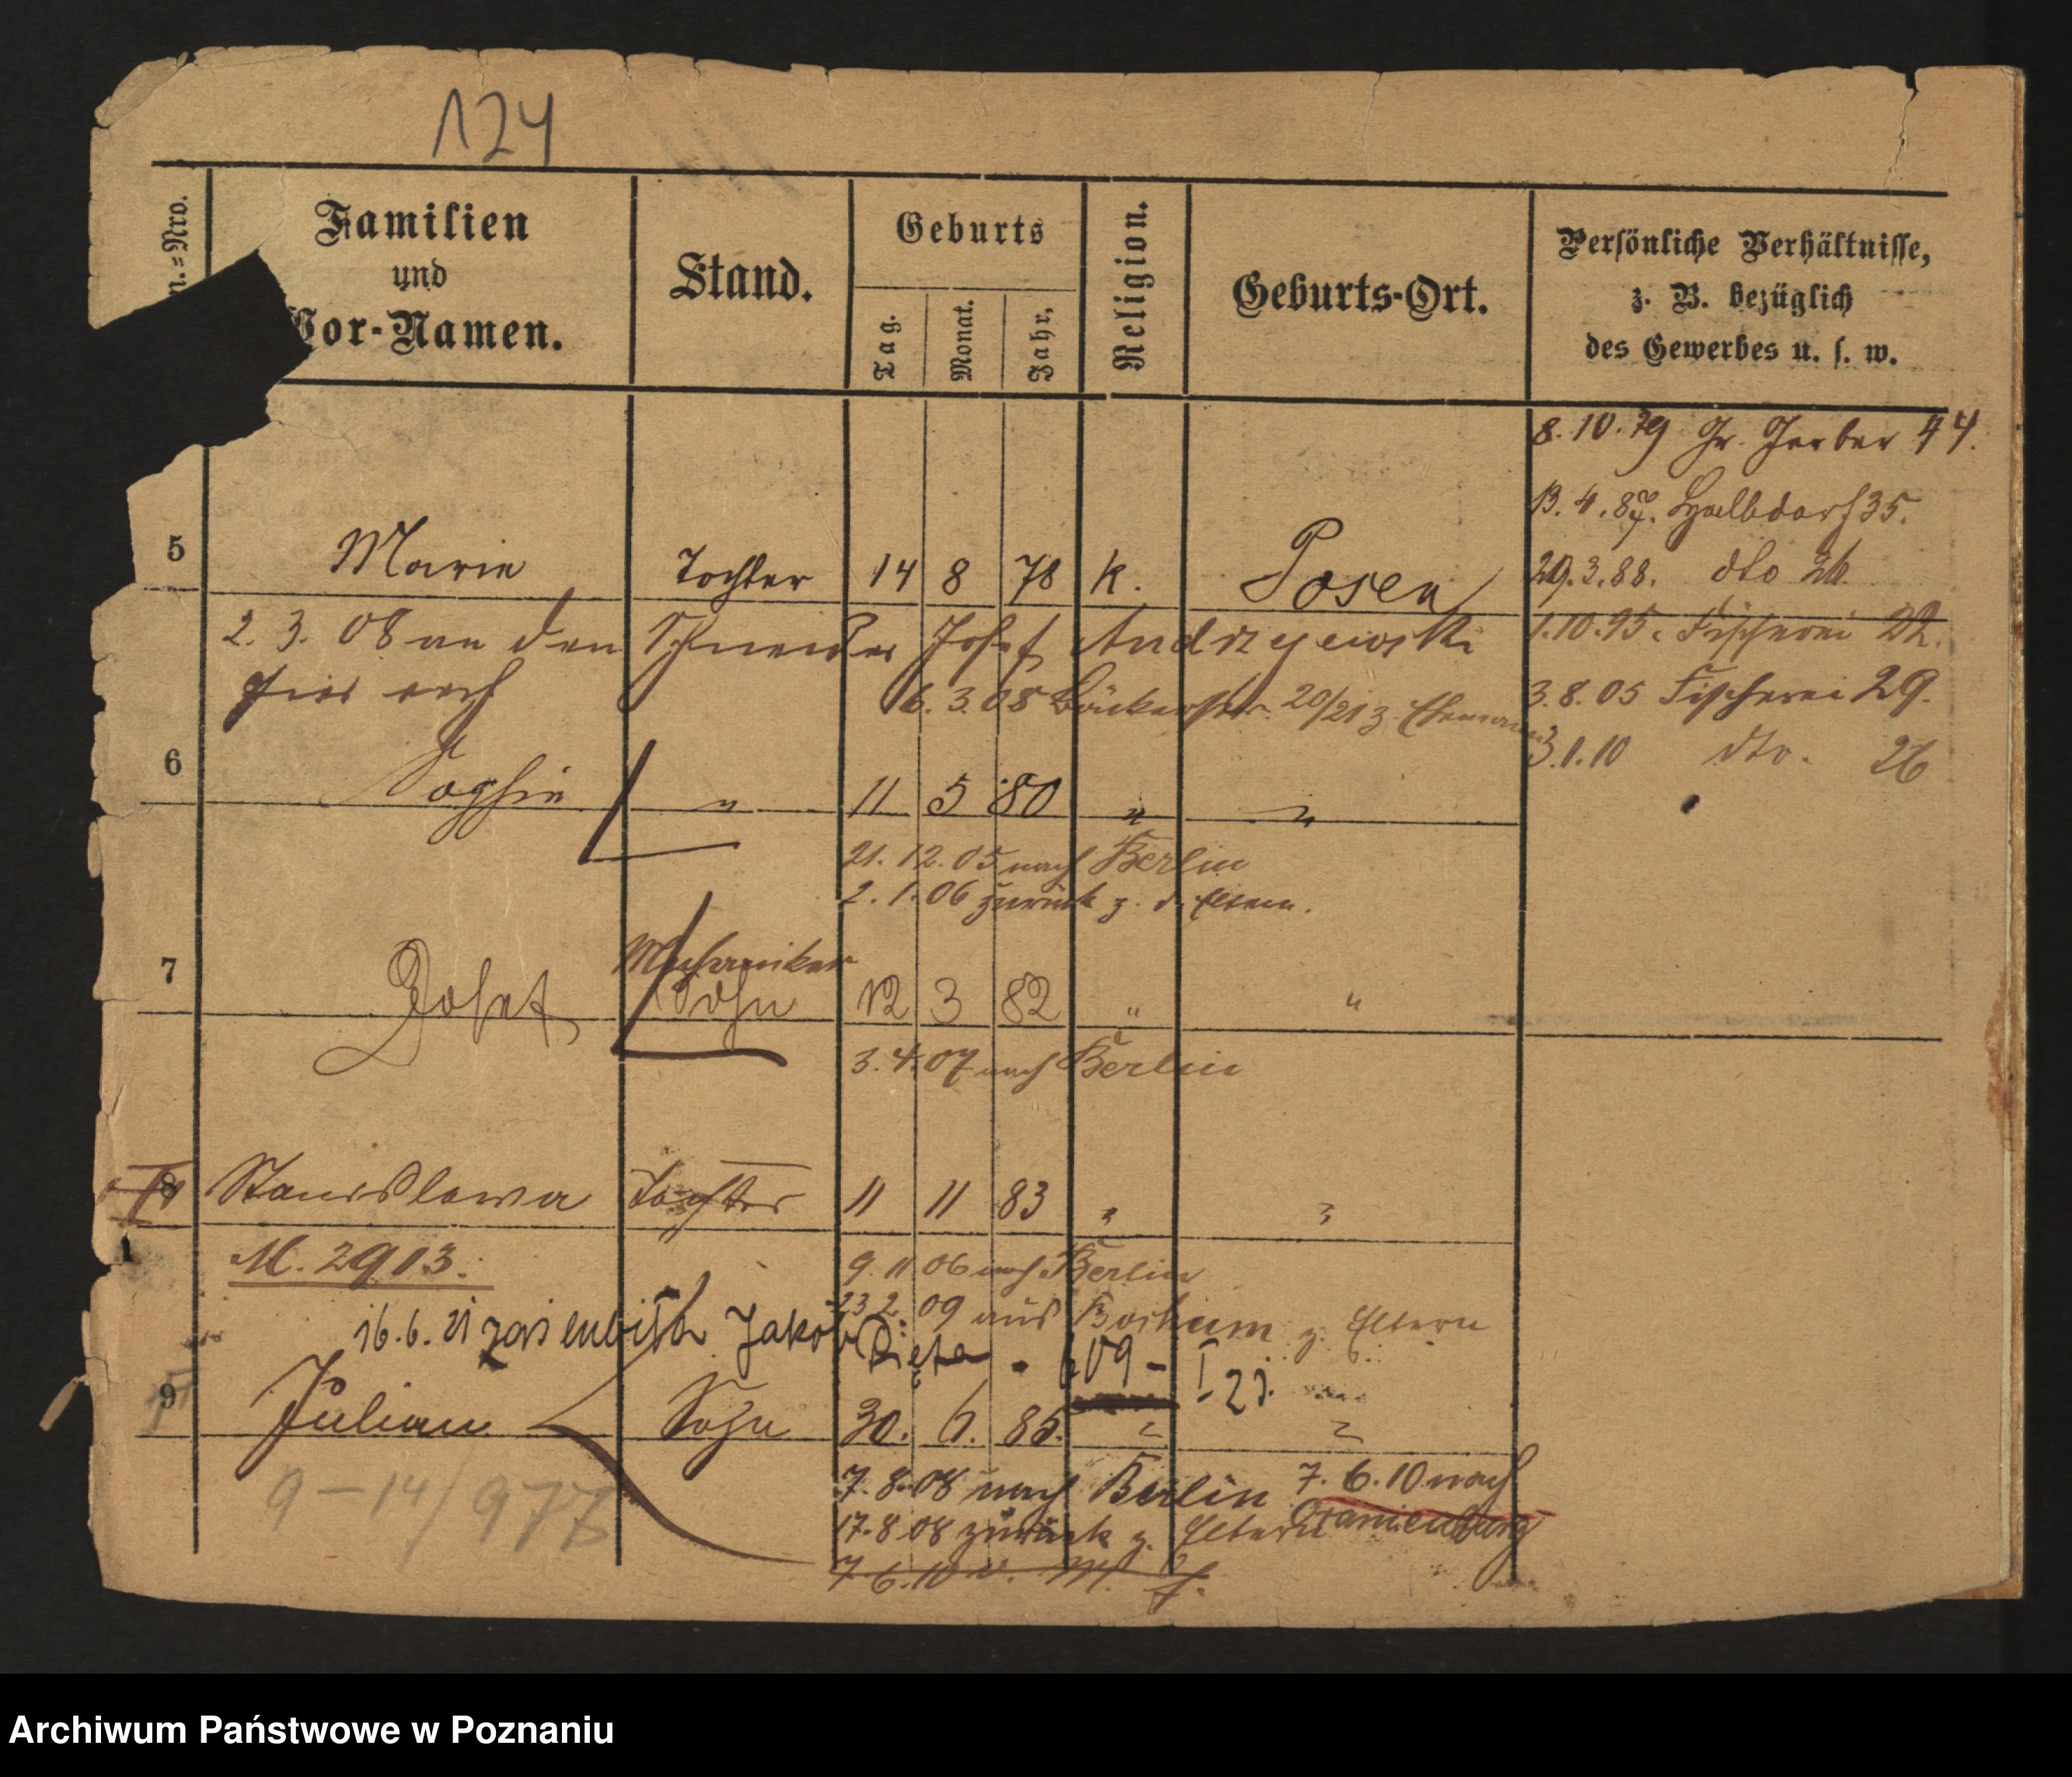 124
n.=Nro.
Familien
und
Vor-Namen.
Stand.
Geburts
Tag.
Monat.
Jahr.
Religion.
Geburts-Ort.
Persönliche Verhältnisse,
z. B. bezüglich
des Gewerbes u. s. w.
8.10.79 Gr. Gerber 44.
13.4.87. Halbdorf 35.
5 Marie Tochter 14 8 78 k. Posen
29.3.88. dto 26.
2.3.08 an den Schneider Josef Andrzejewski
1.10.95. Fischerei 22.
hier verh
6.3.08 Bäckerstr. 20/21 z. Ehemann
3.8.05 Fischerei 29.
3.1.10 dto. 26
6 Sophie " 11 5 80 " "
21.12.05 nach Berlin
2.1.06 zurück z. d. Eltern.
Mechaniker
7 Josef Sohn 12 3 82 " "
3.4.07 nach Berlin
8 Stanislawa Tochter 11 11 83 " "
M. 2913.
9.11.06 nach Berlin
23.2.09 aus Bochum z. Eltern
16.6.21 Jakob
9 Julian Sohn 30. 1. 85. " "
9-14/977
7.8.08 nach Berlin
7.6.10 nach
Oranienburg
17.8.08 zurück z. Eltern
7.6.10 v.